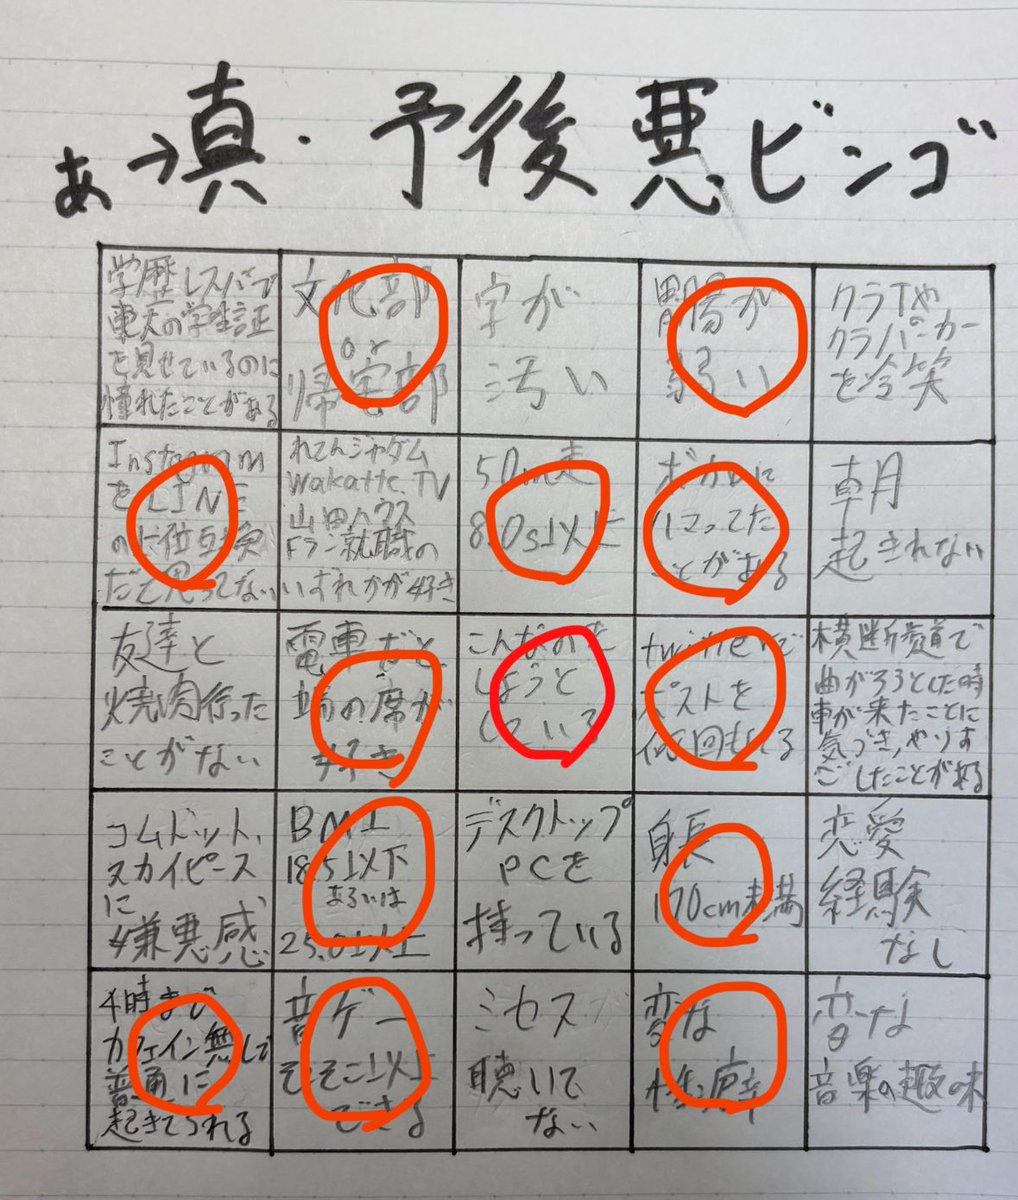 あっ→真・予後悪ビンゴ
学歴レスバで
東大の学生証
を見せているのに
憧れたことがある
文化部
or
帰宅部
字が
汚い
胃腸が
弱い
クラTや
クラパーカー
を冷笑
Instagram
をLINE
の上位互換
だと思ってない
れてんジャダム
wakatte.TV
山田ハウス
Fラン就職の
いずれかが好き
50m走
8.0s以上
ボカロに
ハマってた
ことがある
朝
起きれない
友達と
焼肉行った
ことがない
電車だと
端の席が
好き
こんなのを
しようと
している
twitterで
ポストを
何回もしてる
横断歩道で
曲がろうとした時
車が来たことに
気づき、やりす
ごしたことがある
コムドット、
スカイピース
に
嫌悪感
BMI
18.5以下
あるいは
25.0以上
デスクトップ
PCを
持っている
身長
170cm未満
恋愛
経験
なし
4時まで
カフェイン無しで
普通に
起きてられる
音ゲー
そこそこ以上
できる
ミセスが
聴いて
ない
変な
性癖
変な
音楽の趣味